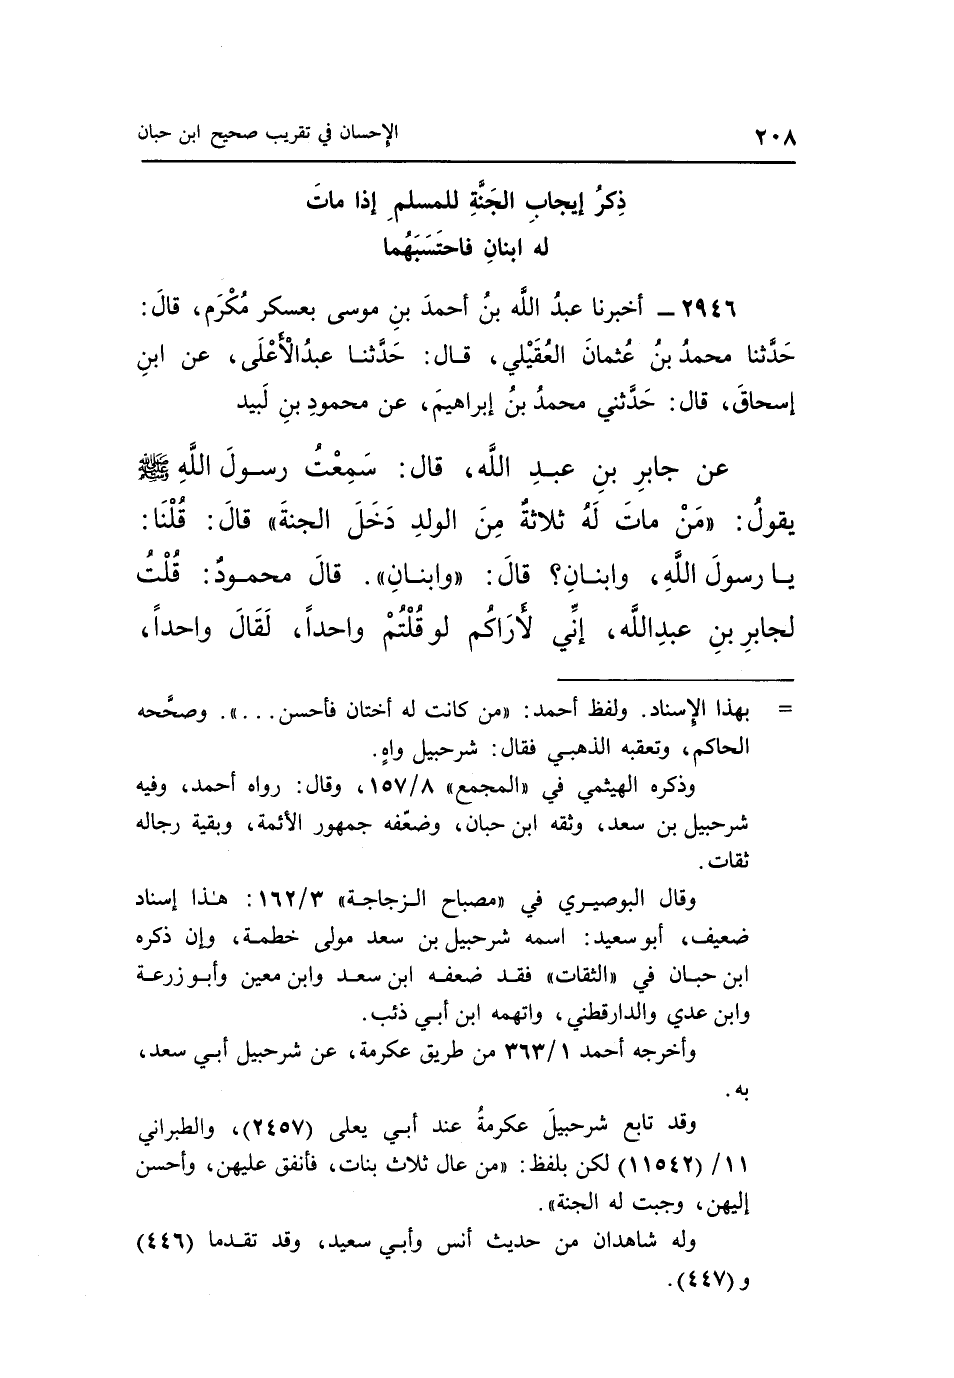 ٢٠٨ الإحسان في تقريب صحيح ابن حبان
ذِكرُ إيجابِ الجَنَّةِ للمسلمِ إذا ماتَ
له ابنانِ فاحتَسَبَهُما
٢٩٤٦ ـ أخبرنا عبدُ اللَّه بنُ أحمدَ بنِ موسى بعسكر مُكْرَم، قالَ:
حَدَّثنا محمدُ بنُ عُثمانَ العُقَيْلي، قال: حَدَّثنا عبدُالْأَعْلَى، عن ابنِ
إسحاقَ، قال: حَدَّثني محمدُ بنُ إبراهيمَ، عن محمودِ بنِ لَبيد
عن جابرِ بنِ عبدِ اللَّه، قال: سَمِعْتُ رسولَ اللَّهِ ﷺ
يقولُ: «مَنْ ماتَ لَهُ ثلاثةٌ مِنَ الولدِ دَخَلَ الجنةَ» قالَ: قُلْنَا:
يا رسولَ اللَّهِ، وابنانِ؟ قالَ: «وابنانِ». قالَ محمودٌ: قُلْتُ
لجابرِ بنِ عبدِاللَّه، إنِّي لأَرَاكُم لو قُلْتُمْ واحداً، لَقَالَ واحداً،
= بهذا الإسناد. ولفظ أحمد: «من كانت له أختان فأحسن...». وصحَّحه
الحاكم، وتعقبه الذهبي فقال: شرحبيل واهٍ.
وذكره الهيثمي في «المجمع» ١٥٧/٨، وقال: رواه أحمد، وفيه
شرحبيل بن سعد، وثقه ابن حبان، وضعّفه جمهور الأئمة، وبقية رجاله
ثقات.
وقال البوصيري في «مصباح الزجاجة» ١٦٢/٣: هٰذا إسناد
ضعيف، أبو سعيد: اسمه شرحبيل بن سعد مولى خطمة، وإن ذكره
ابن حبان في «الثقات» فقد ضعفه ابن سعد وابن معين وأبو زرعة
وابن عدي والدارقطني، واتهمه ابن أبي ذئب.
وأخرجه أحمد ٣٦٣/١ من طريق عكرمة، عن شرحبيل أبي سعد،
به.
وقد تابع شرحبيلَ عكرمةُ عند أبي يعلى (٢٤٥٧)، والطبراني
١١/ (١١٥٤٢) لكن بلفظ: «من عال ثلاث بنات، فأنفق عليهن، وأحسن
إليهن، وجبت له الجنة».
وله شاهدان من حديث أنس وأبي سعيد، وقد تقدما (٤٤٦)
و (٤٤٧).